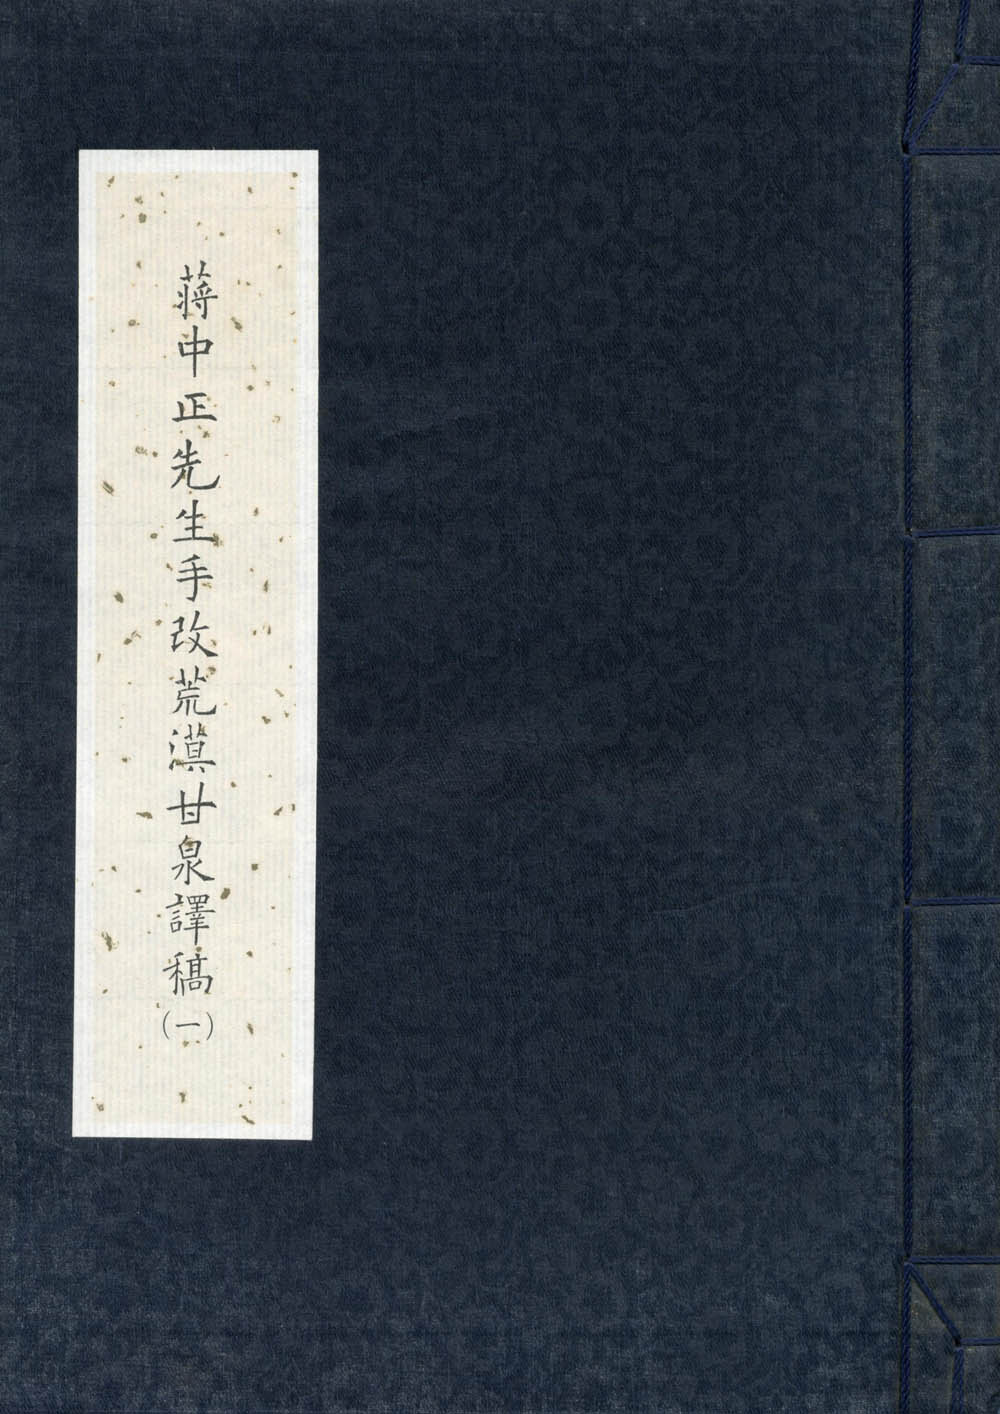 蔣中正先生手改荒漠甘泉譯稿(一)